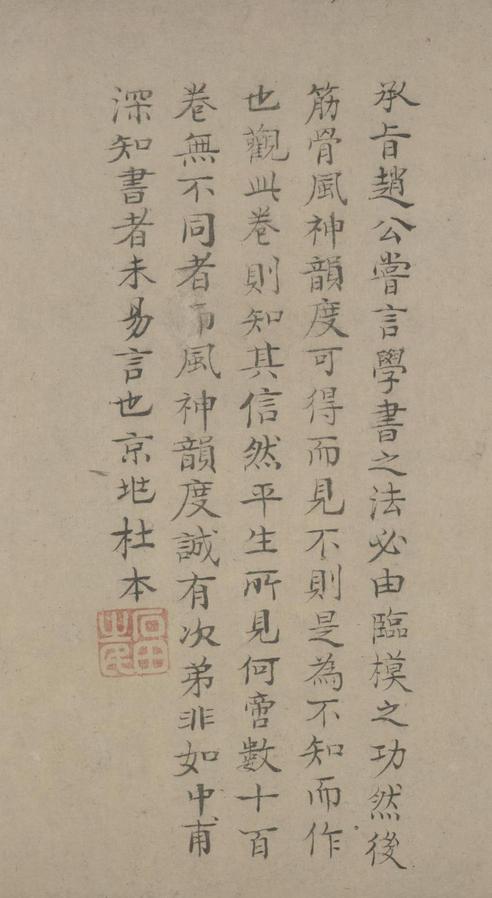 承旨趙公嘗言學書之法必由臨模之功然後
筋骨風神韻度可得而見不則是為不知而作
也觀此卷則知其信然平生所見何啻數十百
卷無不同者而風神韻度誠有次弟非如中甫
深知書者未易言也京兆杜本